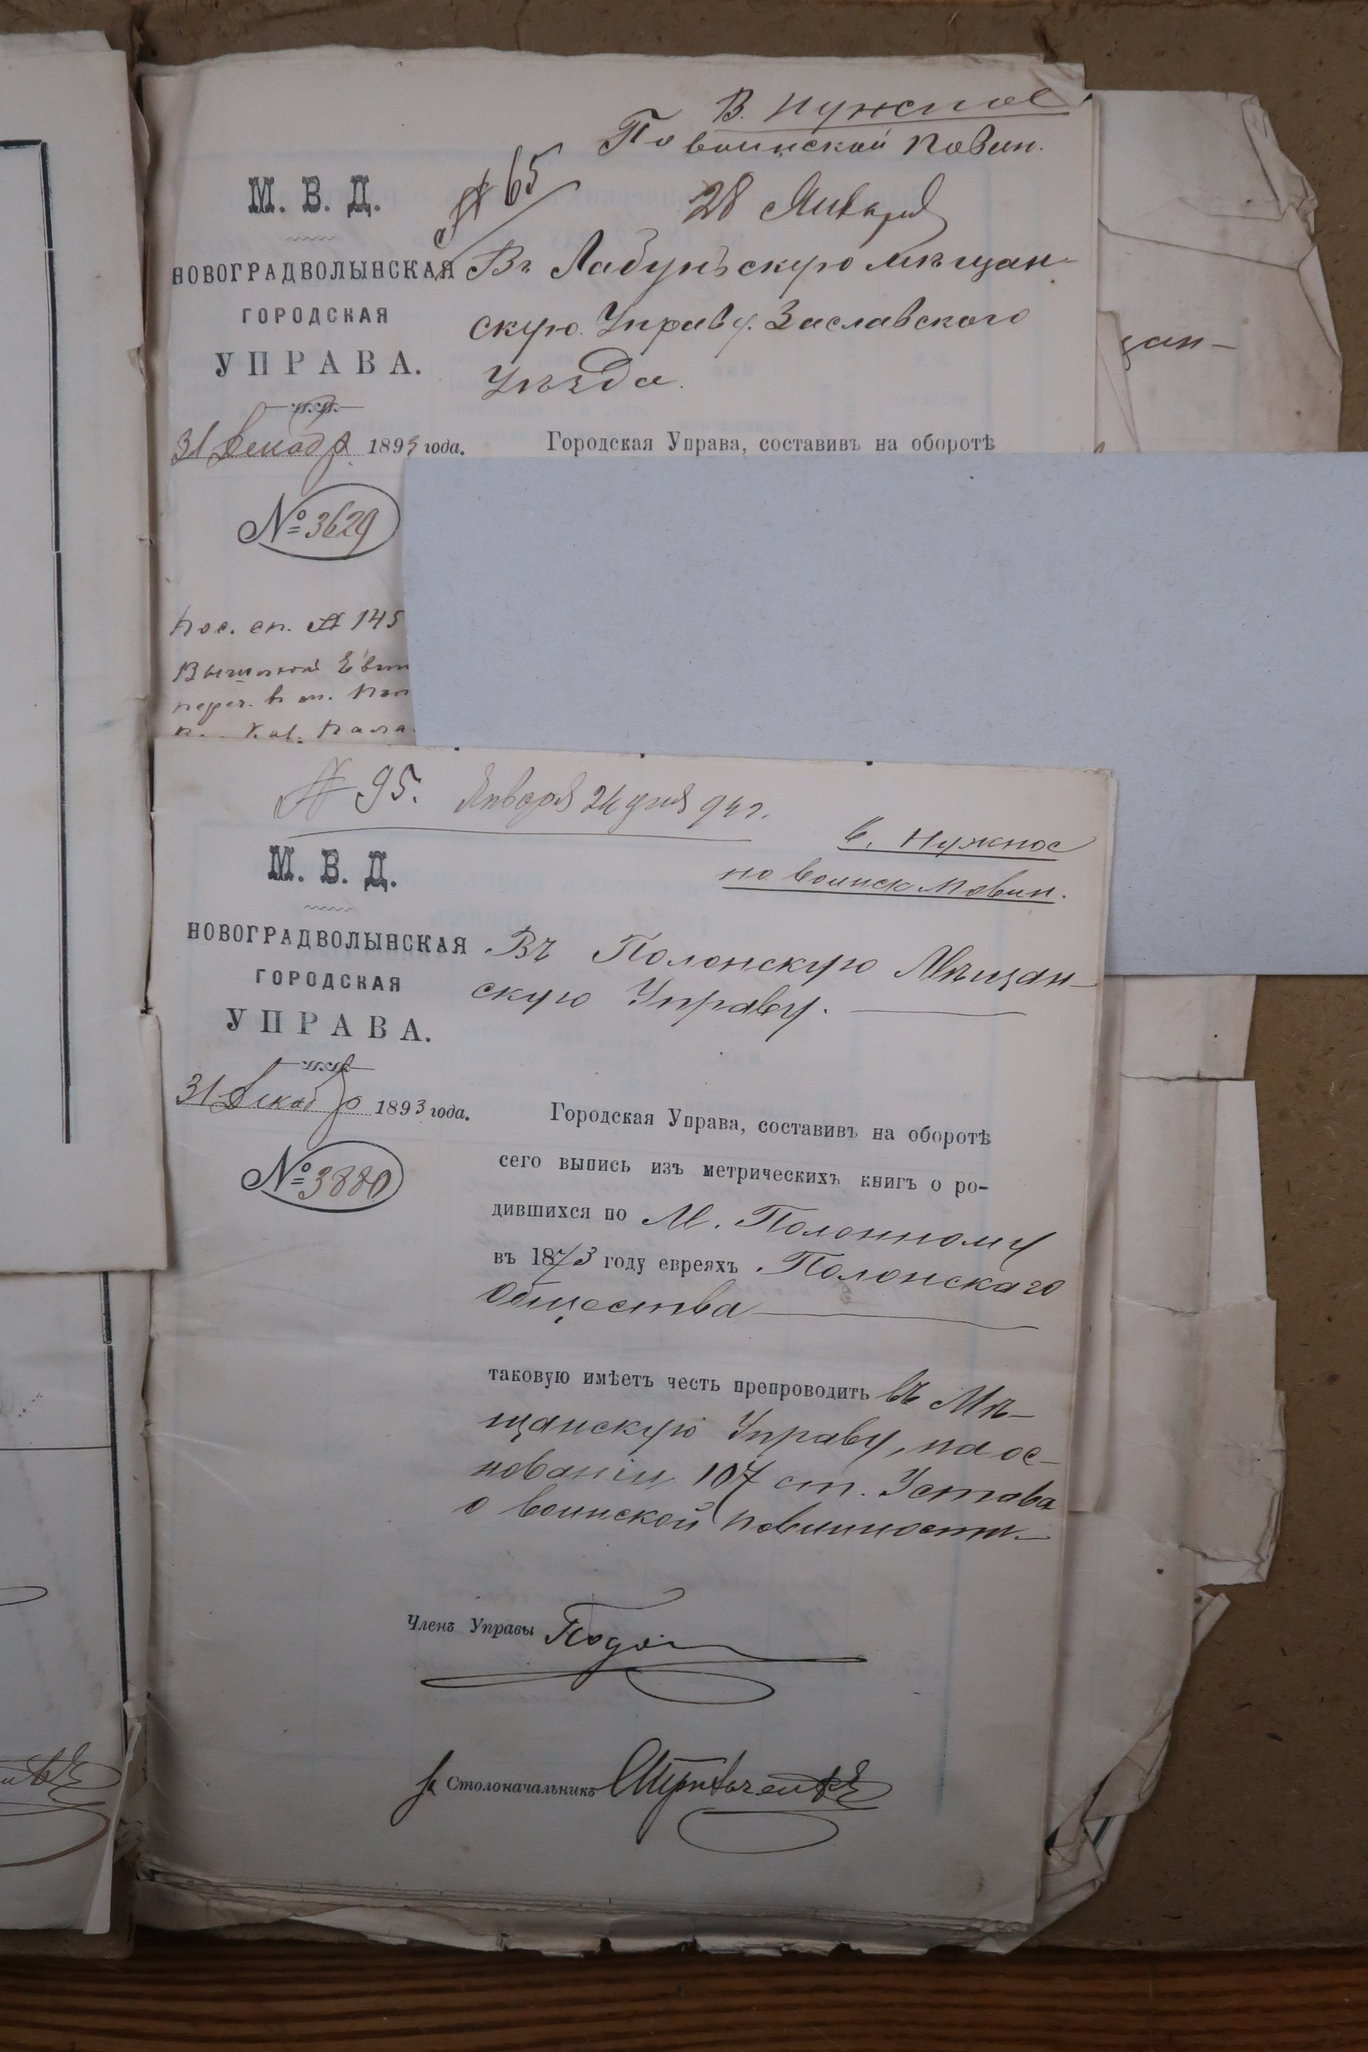 В. Нужное
По воинской повин.
№ 65
28 Января
М. В. Д.
НОВОГРАДВОЛЫНСКАЯ
ГОРОДСКАЯ
УПРАВА.
31 Декабр 1893 года.
№ 3629
Въ Лабуньскую мѣщан-
скую Управу. Заславского
Уѣзда.
Городская Управа, составивъ на оборотѣ
пос. сп. № 145
щан-
№ 95. Января 24 дня 94 г.
В. Нужное
по воинск повин.
М. В. Д.
НОВОГРАДВОЛЫНСКАЯ
ГОРОДСКАЯ
УПРАВА.
31 Декабр 1893 года.
№ 3880
Въ Полонскую Мѣщан-
скую Управу.
Городская Управа, составивъ на оборотѣ
сего выпись изъ метрическихъ книгъ о ро-
дившихся по М. Полонному
въ 1873 году евреяхъ Полонскаго
Общества
таковую имѣетъ честь препроводить въ Мѣ-
щанскую Управу, на ос-
нованіи 107 ст. Устава
о воинской повинности.
Членъ Управы
Столоначальникъ